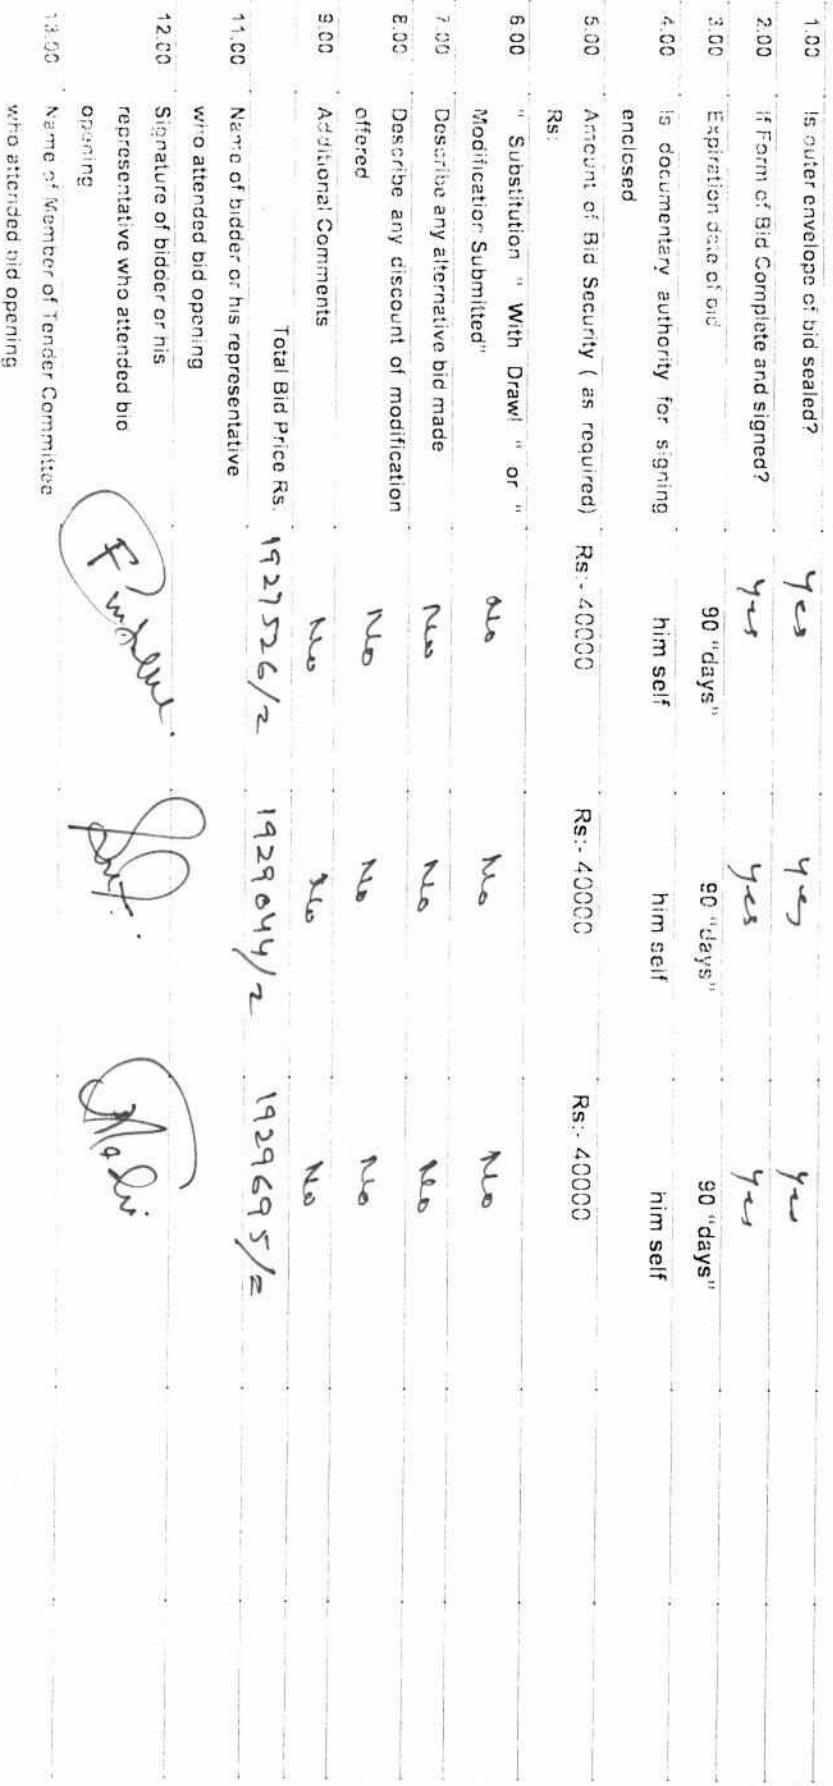 1.00 Is outer envelope of bid sealed? yes yes yes
2.00 if Form of Bid Complete and signed? yes yes yes
3.00 Expiration date of bid 90 "days" 90 "days" 90 "days"
4.00 Is documentary authority for signing him self him self him self
enclosed
5.00 Amount of Bid Security ( as required) Rs:- 40000 Rs:- 40000 Rs:- 40000
Rs:
6.00 " Substitution " With Drawl " or " No No No
Modification Submitted"
7.00 Describe any alternative bid made No No No
8.00 Describe any discount of modification No No No
offered
9.00 Additional Comments No No No
Total Bid Price Rs. 1927526/= 1929044/= 1929695/=
11.00 Name of bidder or his representative
who attended bid opening
12.00 Signature of bidder or his
representative who attended bid
opening
13.00 Name of Member of Tender Committee
who attended bid opening